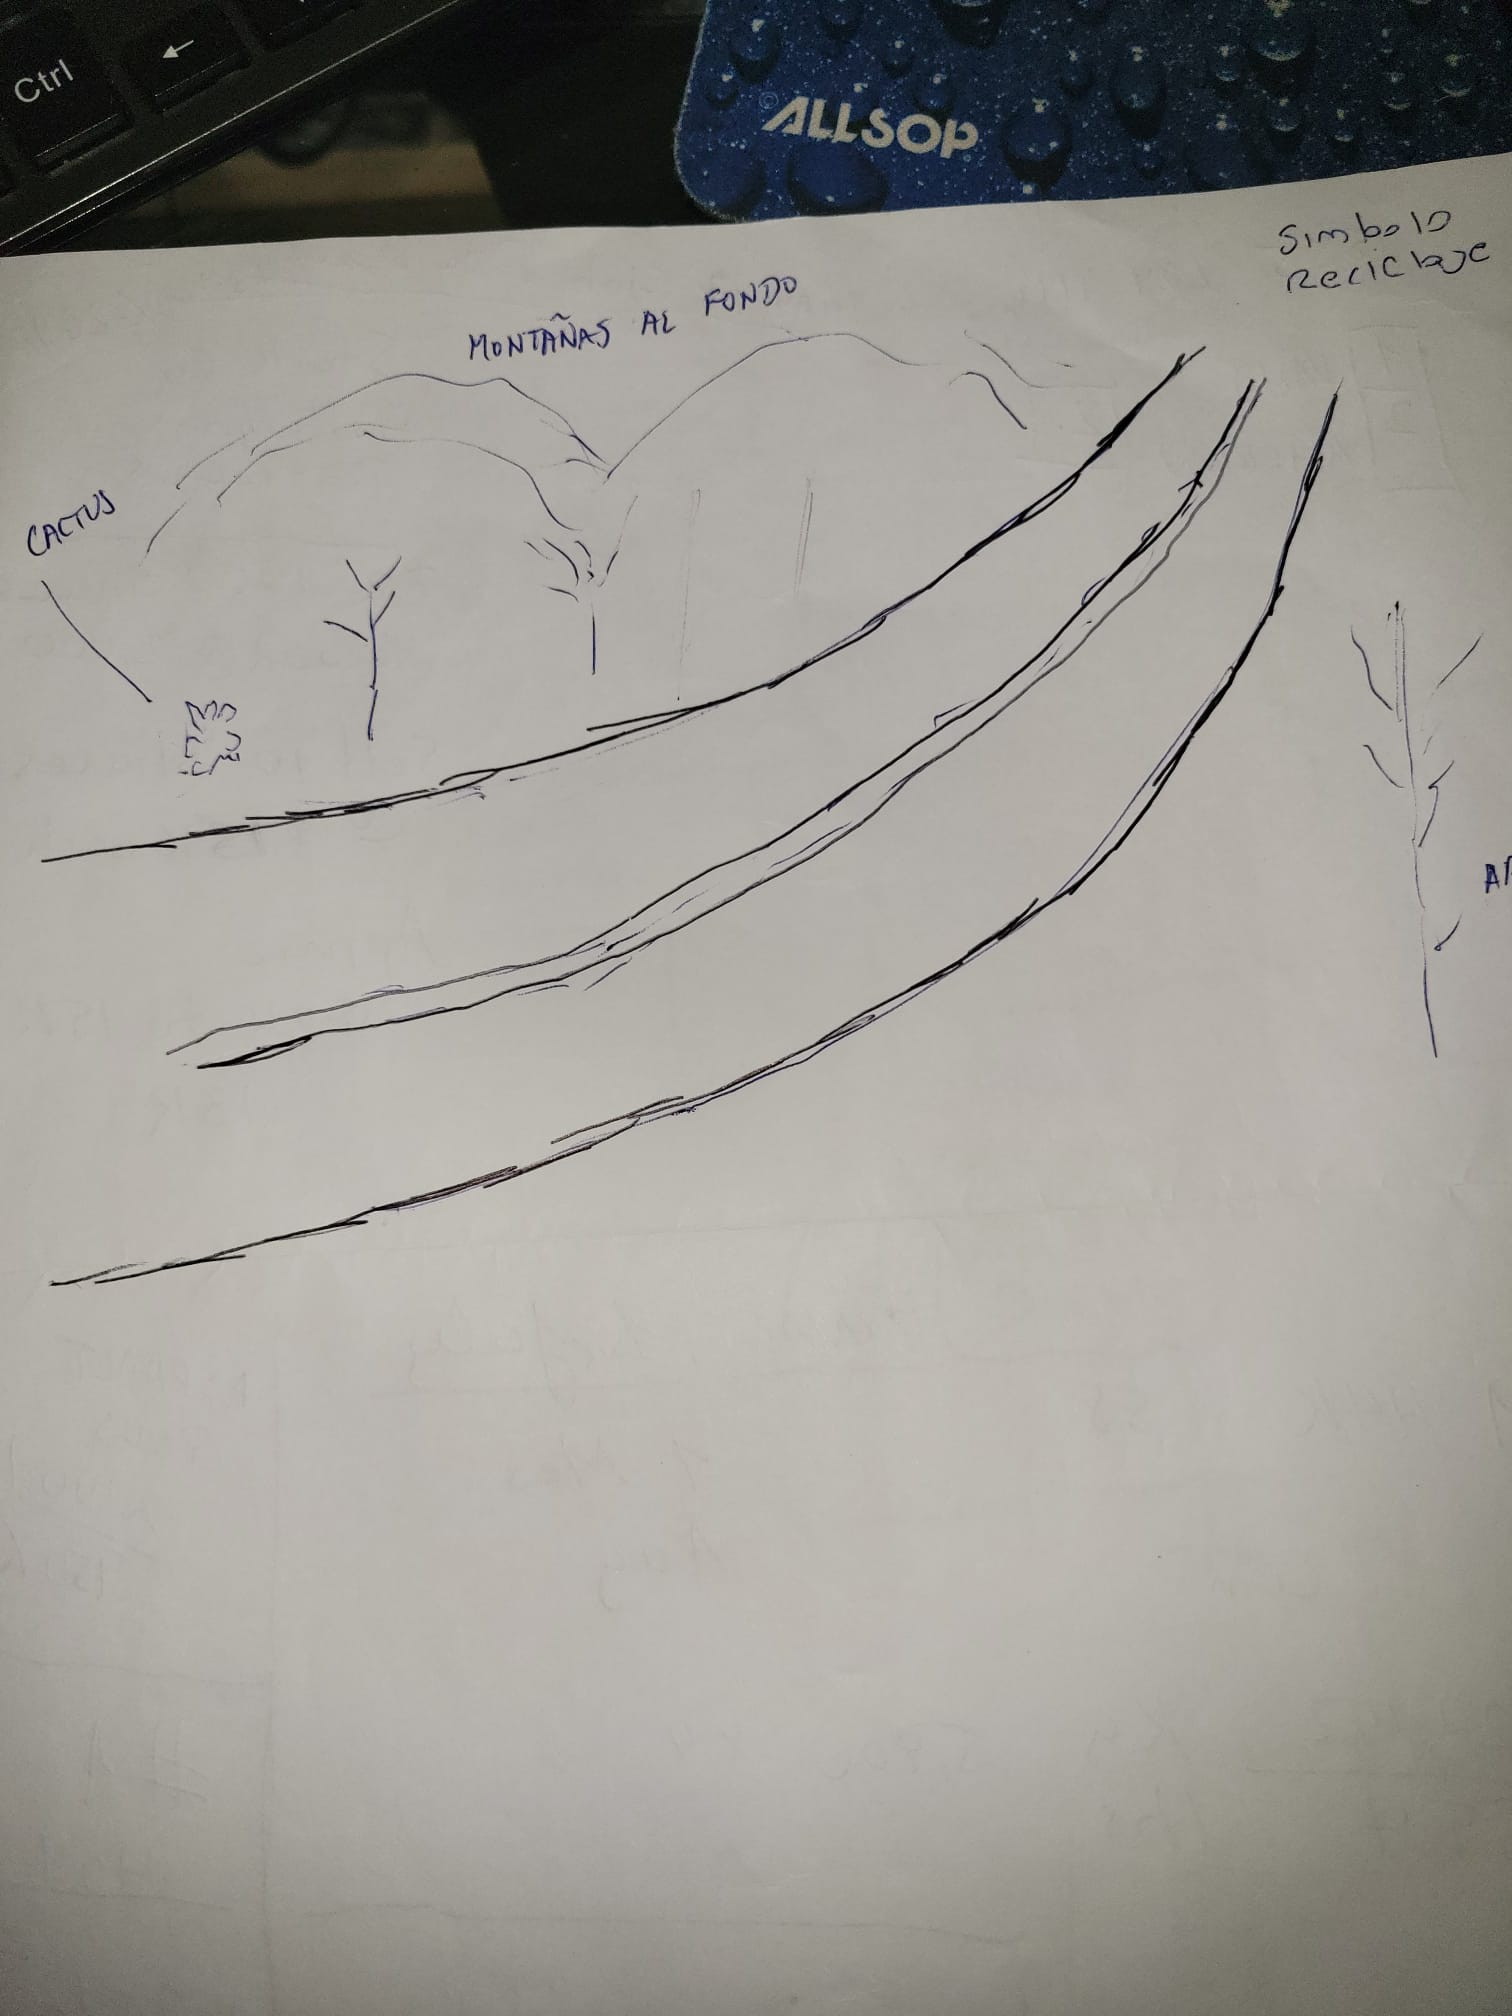 Ctrl
←
ALLSOP
Simbolo
Reciclaje
MONTAÑAS AL FONDO
CACTUS